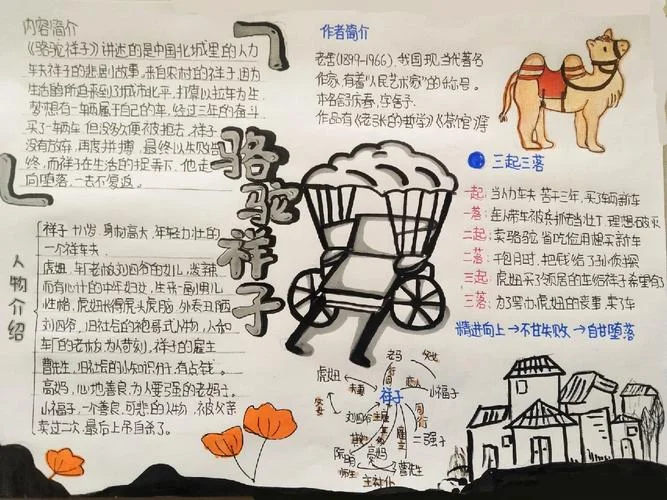 内容简介
《骆驼祥子》讲述的是中国北城里的人力
车夫祥子的悲剧故事，来自农村的祥子因为
生活所迫来到了城市北平，打算以拉车为生，
梦想有一辆属于自己的车，经过三年的奋斗，
买了一辆车，但没多久便被抢去，祥子
没有放弃，再度拼搏，最终以失败告
终，而祥子在生活的捉弄下，他走
向堕落，一去不复返。
作者简介
老舍(1899-1966)，我国现、当代著名
作家，有着"人民艺术家"的称号。
本名舒庆春，字舍予。
作品有《老张的哲学》《茶馆》等
骆驼祥子
三起三落
一起：当人力车夫，苦干三年，买了一辆新车
一落：在人带车被兵抓去当壮丁，理想破灭
二起：卖骆驼，省吃俭用想买新车
二落：干包月时，把钱给了孙侦探
三起：虎妞买了邻居的车给祥子，希望有了
三落：为了置办虎妞的丧事，卖了车
精进向上→不甘失败→自甘堕落
人物介绍
祥子，十八岁，身材高大，年轻力壮的
一个祥车夫
虎妞，车厂老板刘四爷的女儿，泼辣
而有心计的中年妇女，生来一副男儿
性格，虎妞长得虎头虎脑，外表丑陋
刘四爷，旧社会的袍哥式人物，人和
车厂的老板，为人苛刻，祥子的雇主
曹先生，旧社会的小知识分子，有点钱。
高妈，心地善良，为人要强的老妈子。
小福子，一个善良，可悲的人物，被父亲
卖过二次，最后上吊自杀了。
老马
祥子
虎妞
夫妻
小福子
刘四爷
二强子
高妈
阮明
曹先生
师生